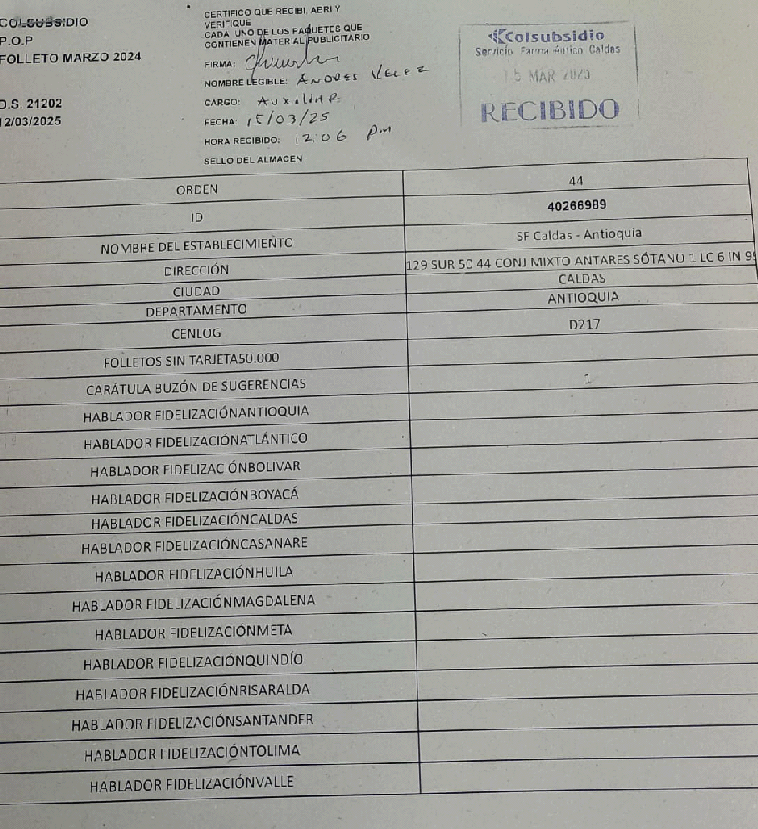 COLSUBSIDIO
P.O.P
FOLLETO MARZO 2024
O.S. 21202
12/03/2025
CERTIFICO QUE RECIBI, ABRI Y
VERIFIQUE
CADA UNO DE LOS PAQUETES QUE
CONTIENEN MATERIAL PUBLICITARIO
FIRMA:
NOMBRE LEGIBLE: ANDRES VELEZ
CARGO:
FECHA: 15/03/25
HORA RECIBIDO: 12:06 pm
SELLO DEL ALMACEN
Colsubsidio
Servicio Farmacéutico Caldas
15 MAR 2025
RECIBIDO
ORDEN 44
ID 40266989
NOMBRE DEL ESTABLECIMIENTO SF Caldas - Antioquia
DIRECCIÓN 129 SUR 50 44 CONJ MIXTO ANTARES SÓTANO LC 6 IN 99
CIUDAD CALDAS
DEPARTAMENTO ANTIOQUIA
CENLOG D217
FOLLETOS SIN TARJETA50.000
CARÁTULA BUZÓN DE SUGERENCIAS
HABLADOR FIDELIZACIÓNANTIOQUIA
HABLADOR FIDELIZACIÓNATLÁNTICO
HABLADOR FIDELIZACIÓNBOLIVAR
HABLADOR FIDELIZACIÓNBOYACÁ
HABLADOR FIDELIZACIÓNCALDAS
HABLADOR FIDELIZACIÓNCASANARE
HABLADOR FIDELIZACIÓNHUILA
HABLADOR FIDELIZACIÓNMAGDALENA
HABLADOR FIDELIZACIÓNMETA
HABLADOR FIDELIZACIÓNQUINDÍO
HABLADOR FIDELIZACIÓNRISARALDA
HABLADOR FIDELIZACIÓNSANTANDER
HABLADOR FIDELIZACIÓNTOLIMA
HABLADOR FIDELIZACIÓNVALLE